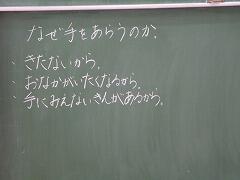 なぜ手をあらうのか。
・きたないから。
・おなかがいたくなるから。
・手にみえないきんがあるから。